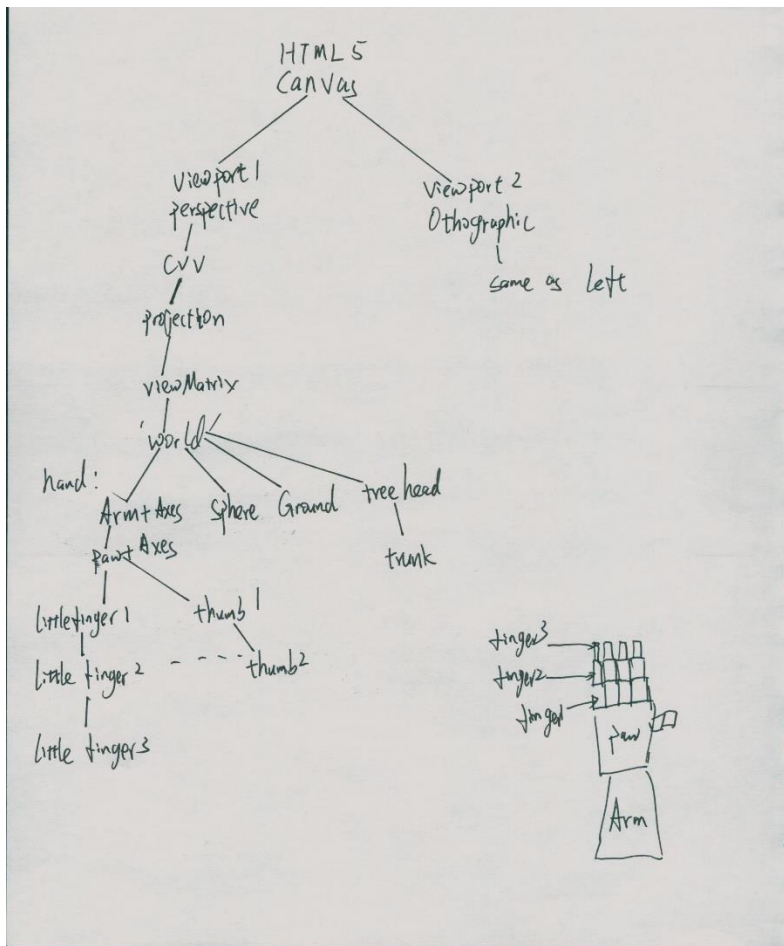 HTML5
Canvas
Viewport 1
perspective
Viewport 2
Othographic
CVV
same as left
projection
viewMatrix
'world'
hand:
Arm+Axes
Sphere
Ground
tree head
paw+Axes
trunk
littlefinger1
thumb1
little finger2
thumb2
little finger3
finger3
finger2
finger1
paw
Arm